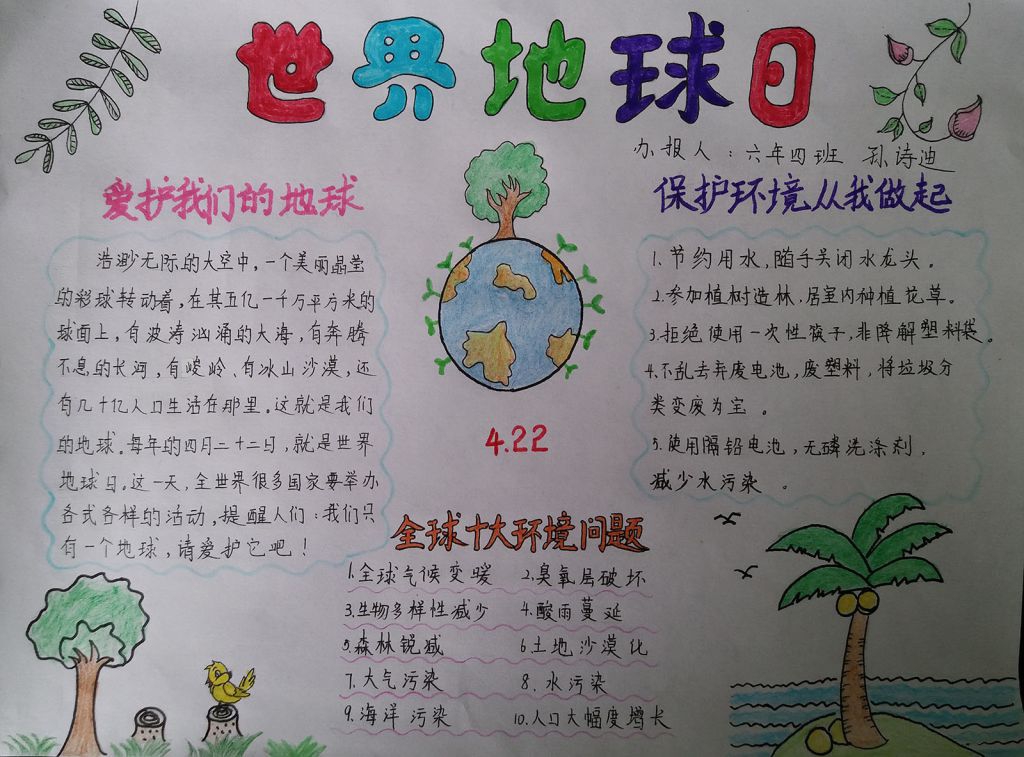 世界地球日
办报人：六年四班 孙诗迪
爱护我们的地球
浩渺无际的太空中，一个美丽晶莹
的彩球转动着，在其五亿一千万平方米的
球面上，有波涛汹涌的大海，有奔腾
不息的长河，有峻岭、有冰山沙漠，还
有几十亿人口生活在那里。这就是我们
的地球。每年的四月二十二日，就是世界
地球日。这一天，全世界很多国家要举办
各式各样的活动，提醒人们：我们只
有一个地球，请爱护它吧！
4.22
保护环境从我做起
1.节约用水，随手关闭水龙头。
2.参加植树造林，居室内种植花草。
3.拒绝使用一次性筷子，非降解塑料袋。
4.不乱去弃废电池，废塑料，将垃圾分
类变废为宝。
5.使用隔铅电池，无磷洗涤剂，
减少水污染。
全球十大环境问题
1.全球气候变暖 2.臭氧层破坏
3.生物多样性减少 4.酸雨蔓延
5.森林锐减 6.土地沙漠化
7.大气污染 8.水污染
9.海洋污染 10.人口大幅度增长